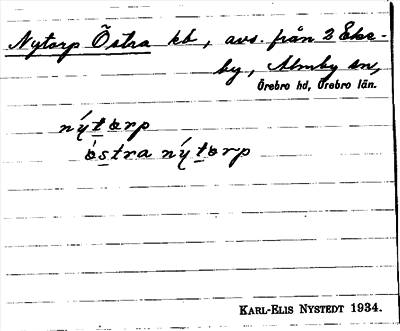 Nytorp Östra kb, avs. från 3 Eke-
by, Almby sn,
Örebro hd, Örebro län.
nýtorp
östra nýtorp
KARL-ELIS NYSTEDT 1934.